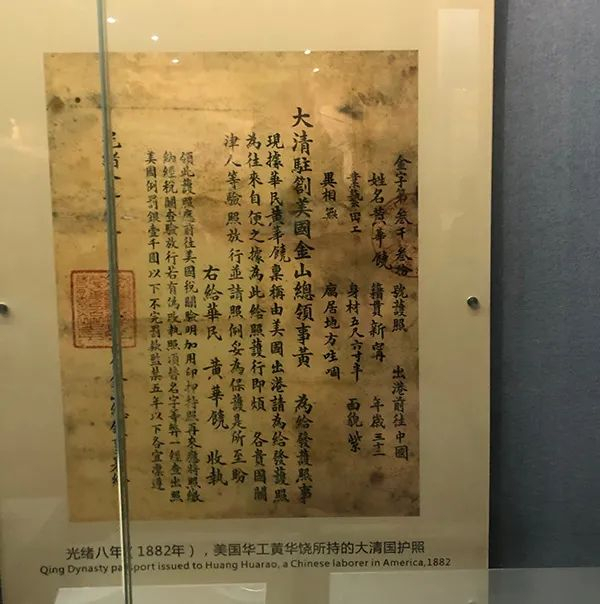 金字第叁千叁拾 號護照 出港前往中國
姓名黃華饒 籍貫新甯 年歲三十一
業藝田工 身材五尺六寸半 面貌紫
異相無 寓居地方
大清駐劄美國金山總領事黃 為給發護照事
現據華民黃華饒稟稱由美國出港請為給發護照
為往來自便之據為此給照護行即煩 各貴國關
津人等驗照放行並請照例妥為保護是所至盼
右給華民 黃華饒 收執
領此護照應前往美國稅關驗明加用印押特照再來應將照繳
納經稅關查驗放行若有偽改執照頂替名字等弊一經查出照
美國例罰銀壹千圓以下不完罰款監禁五年以下各宜禀遵
光緒
光绪八年(1882年),美国华工黄华饶所持的大清国护照
Qing Dynasty passport issued to Huang Huarao, a Chinese laborer in America,1882